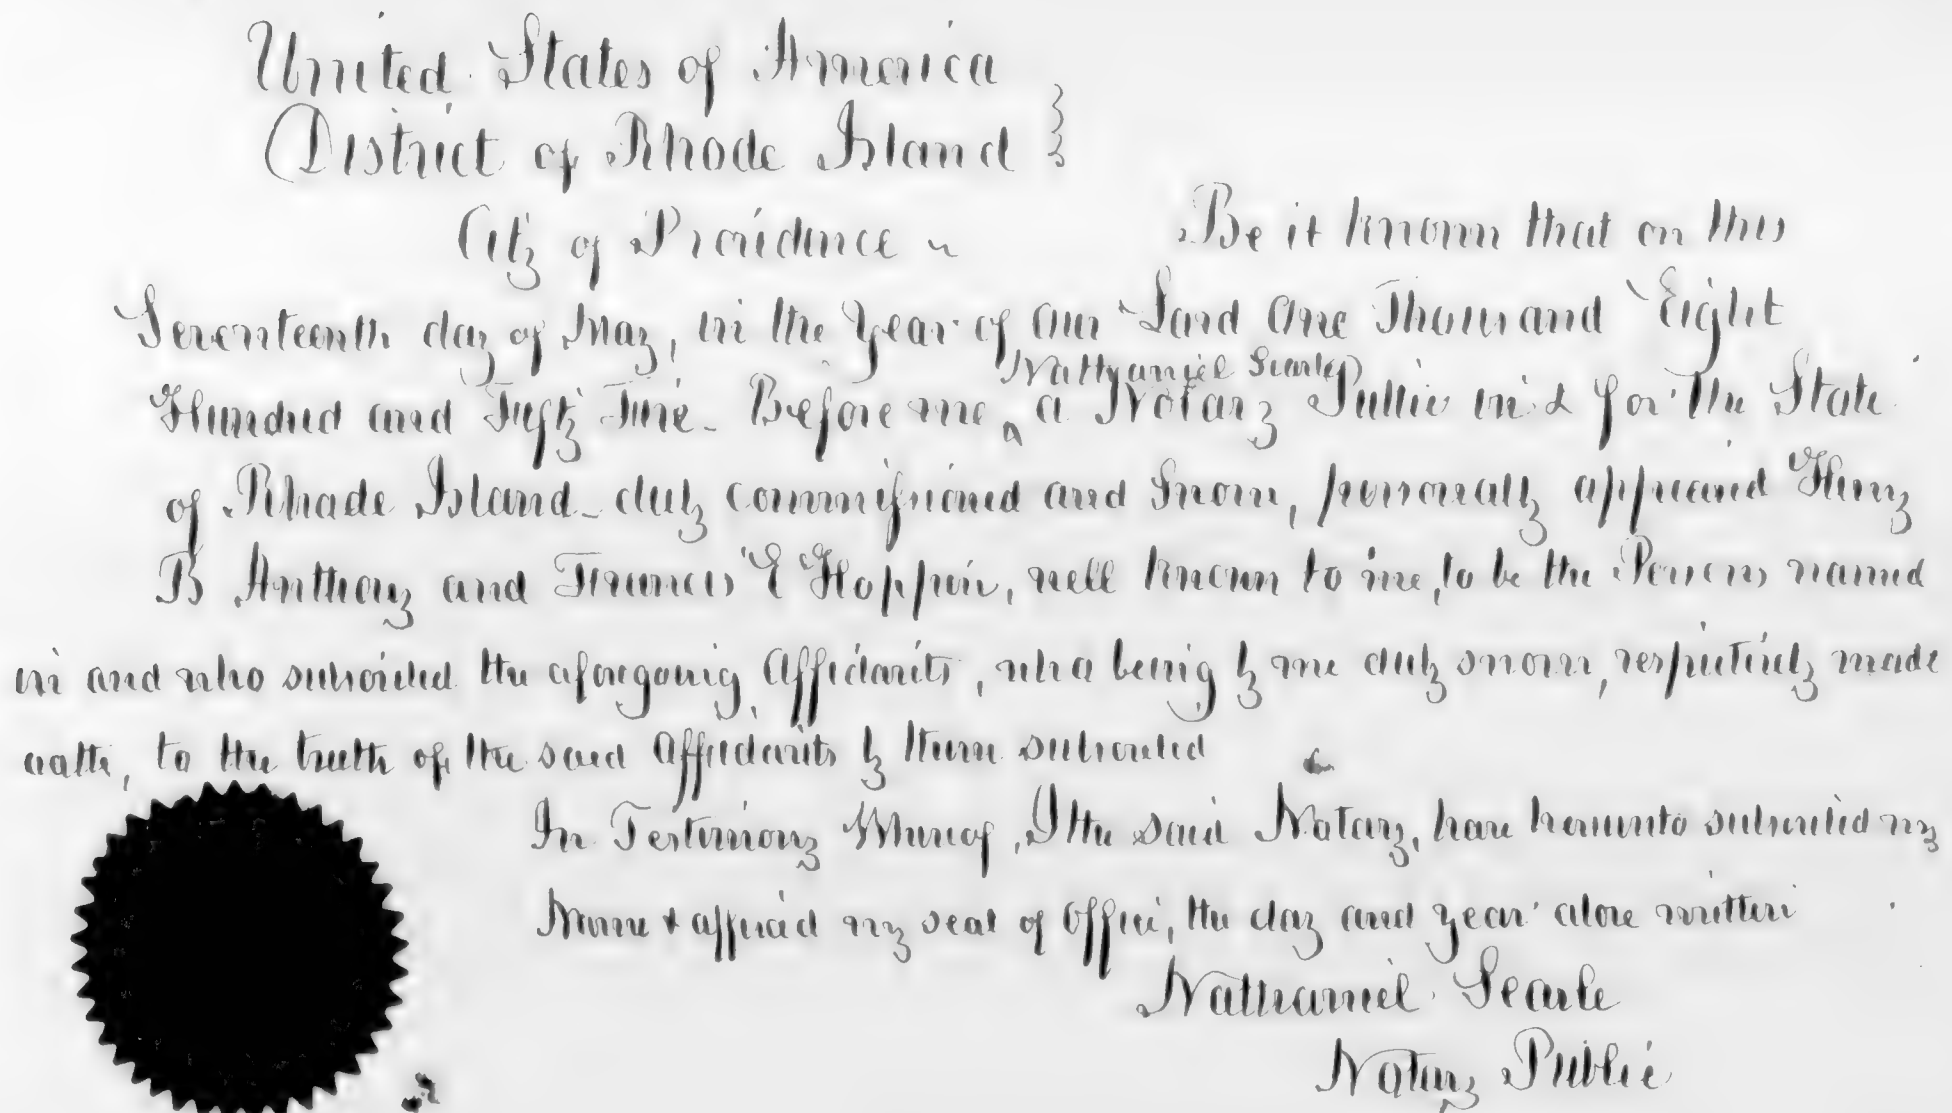 United States of America
District of Rhode Island }
City of Providence ~ Be it known that on this
Seventeenth day of May, in the Year of our Lord One Thousand Eight
Nathaniel Searle
Hundred and Fifty Five. Before me ^ a Notary Public in & for the State
of Rhode Island duly commissioned and Sworn, personally appeared Henry
B Anthony and Francis E Hoppin, well known to me, to be the Persons named
in and who subscribed the aforegoing Affidavits, who being by me duly sworn, respectively made
oath, to the truth of the said Affidavits by them subscribed
In Testimony Whereof, I the said Notary, have hereunto subscribed my
Name & affixed my seal of Office, the day and year above written
Nathaniel Searle
Notary Public